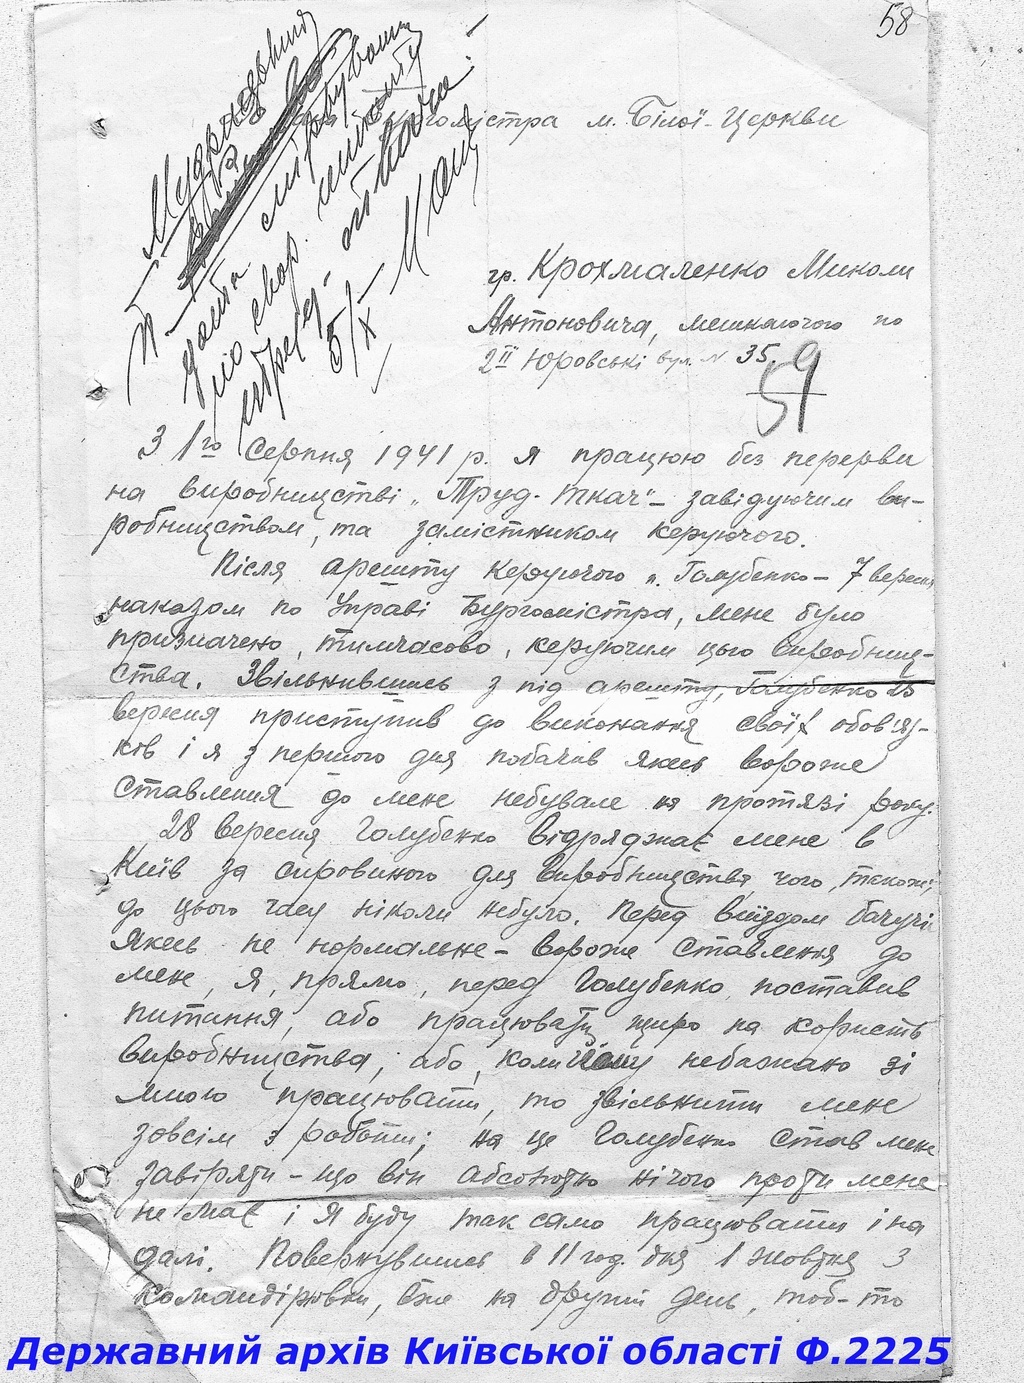 58
Бургомістра м. Білої-Церкви
гр. Крохмаленко Миколи
Антоновича, мешкаючого по
2ІЇ Юровські вул. N 35.
59
5/X
З 1го серпня 1941 р. я працюю без перерви
на виробництві „Труд-ткач“ – завідуючим ви-
робництвом, та замістником керуючого.
Після арешту керуючого п. Голубенко – 7 вересня
наказом по Управі Бургомістра, мене було
призначено, тимчасово, керуючим цього виробниц-
ства. Звільнившись з під арешту, Голубенко 25
вересня приступив до виконання своїх обов'яз-
ків і я з першого дня побачив якесь вороже
ставлення до мене небувале на протязі року.
28 вересня Голубенко відряджає мене в
Київ за сировиною для виробництва, чого, також,
до цього часу ніколи небуло. Перед виїздом бачучи
якесь не нормальне – вороже ставлення до
мене, я, прямо, перед Голубенко поставив
питання, або працювать щиро на користь
виробництва, або, коли йому небажано зі
мною працювати, то звільнити мене
зовсім з роботи; на це Голубенко став мене
завіряти – що він абсолютно нічого проти мене
не має і я буду так само працювати і на
далі. Повернувшись в 11 год. дня 1 жовтня з
командіровки, вже на другий день, тоб-то
Державний архів Київської області Ф.2225